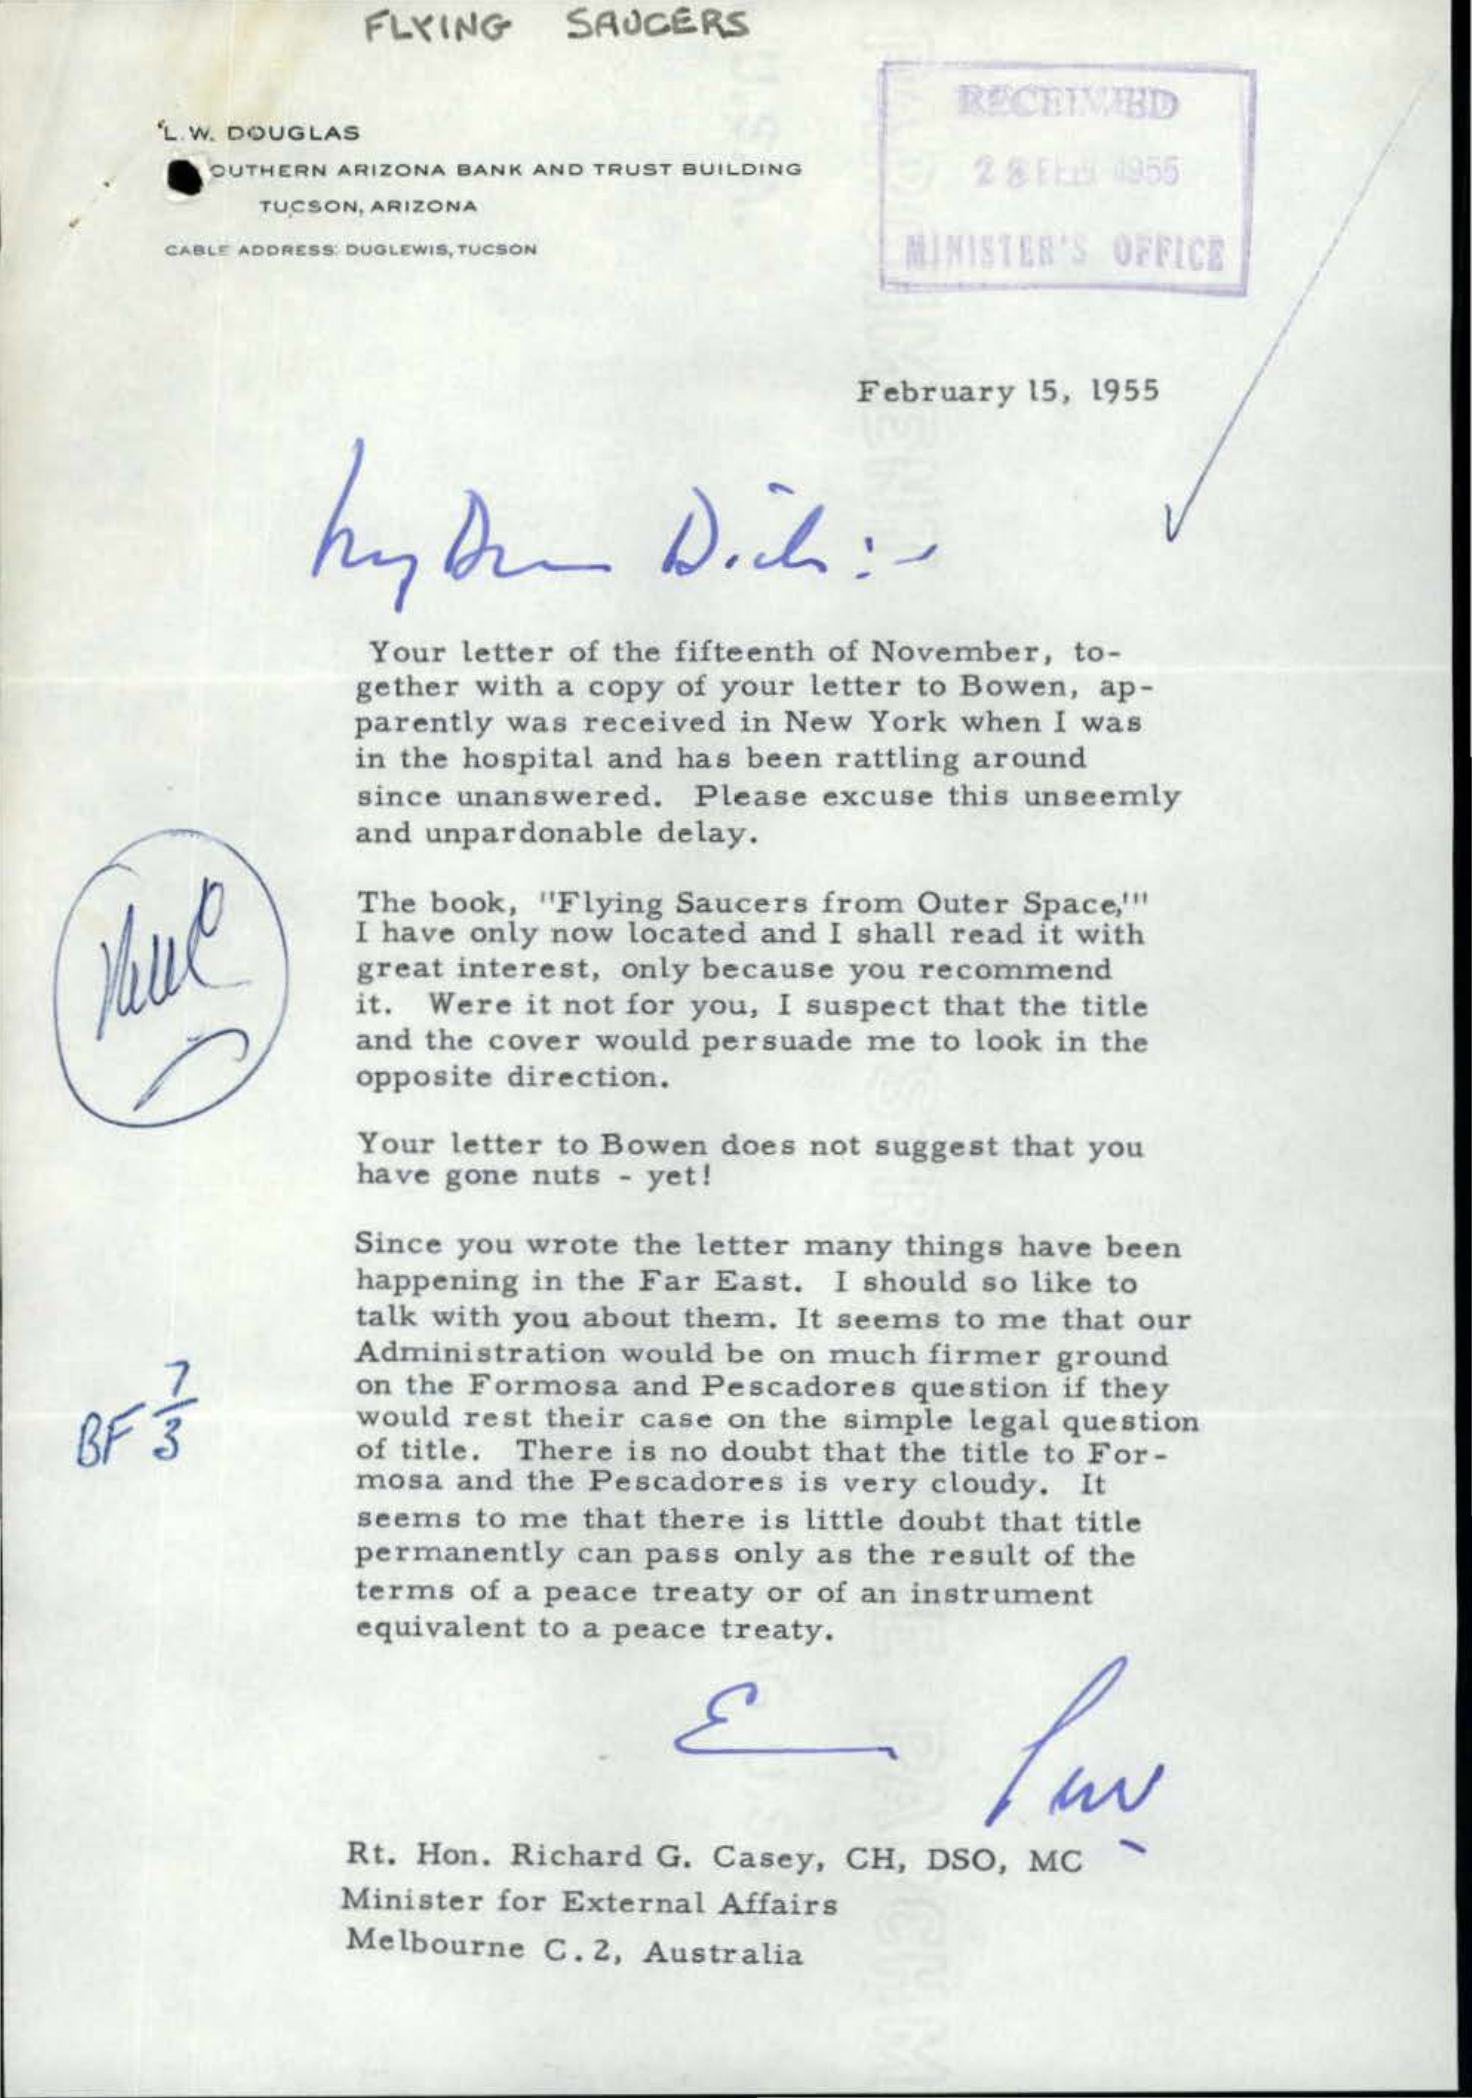 FLYING SAUCERS
L. W. DOUGLAS
OUTHERN ARIZONA BANK AND TRUST BUILDING
TUCSON, ARIZONA
CABLE ADDRESS: DUGLEWIS, TUCSON
RECEIVED
28 FEB 1955
MINISTER'S OFFICE
February 15, 1955
My Dear Dick:-
Your letter of the fifteenth of November, to-
gether with a copy of your letter to Bowen, ap-
parently was received in New York when I was
in the hospital and has been rattling around
since unanswered. Please excuse this unseemly
and unpardonable delay.
The book, "Flying Saucers from Outer Space,'"
I have only now located and I shall read it with
great interest, only because you recommend
it. Were it not for you, I suspect that the title
and the cover would persuade me to look in the
opposite direction.
Your letter to Bowen does not suggest that you
have gone nuts - yet!
Since you wrote the letter many things have been
happening in the Far East. I should so like to
talk with you about them. It seems to me that our
Administration would be on much firmer ground
on the Formosa and Pescadores question if they
would rest their case on the simple legal question
of title. There is no doubt that the title to For-
mosa and the Pescadores is very cloudy. It
seems to me that there is little doubt that title
permanently can pass only as the result of the
terms of a peace treaty or of an instrument
equivalent to a peace treaty.
BF 7/3
Rt. Hon. Richard G. Casey, CH, DSO, MC
Minister for External Affairs
Melbourne C.2, Australia